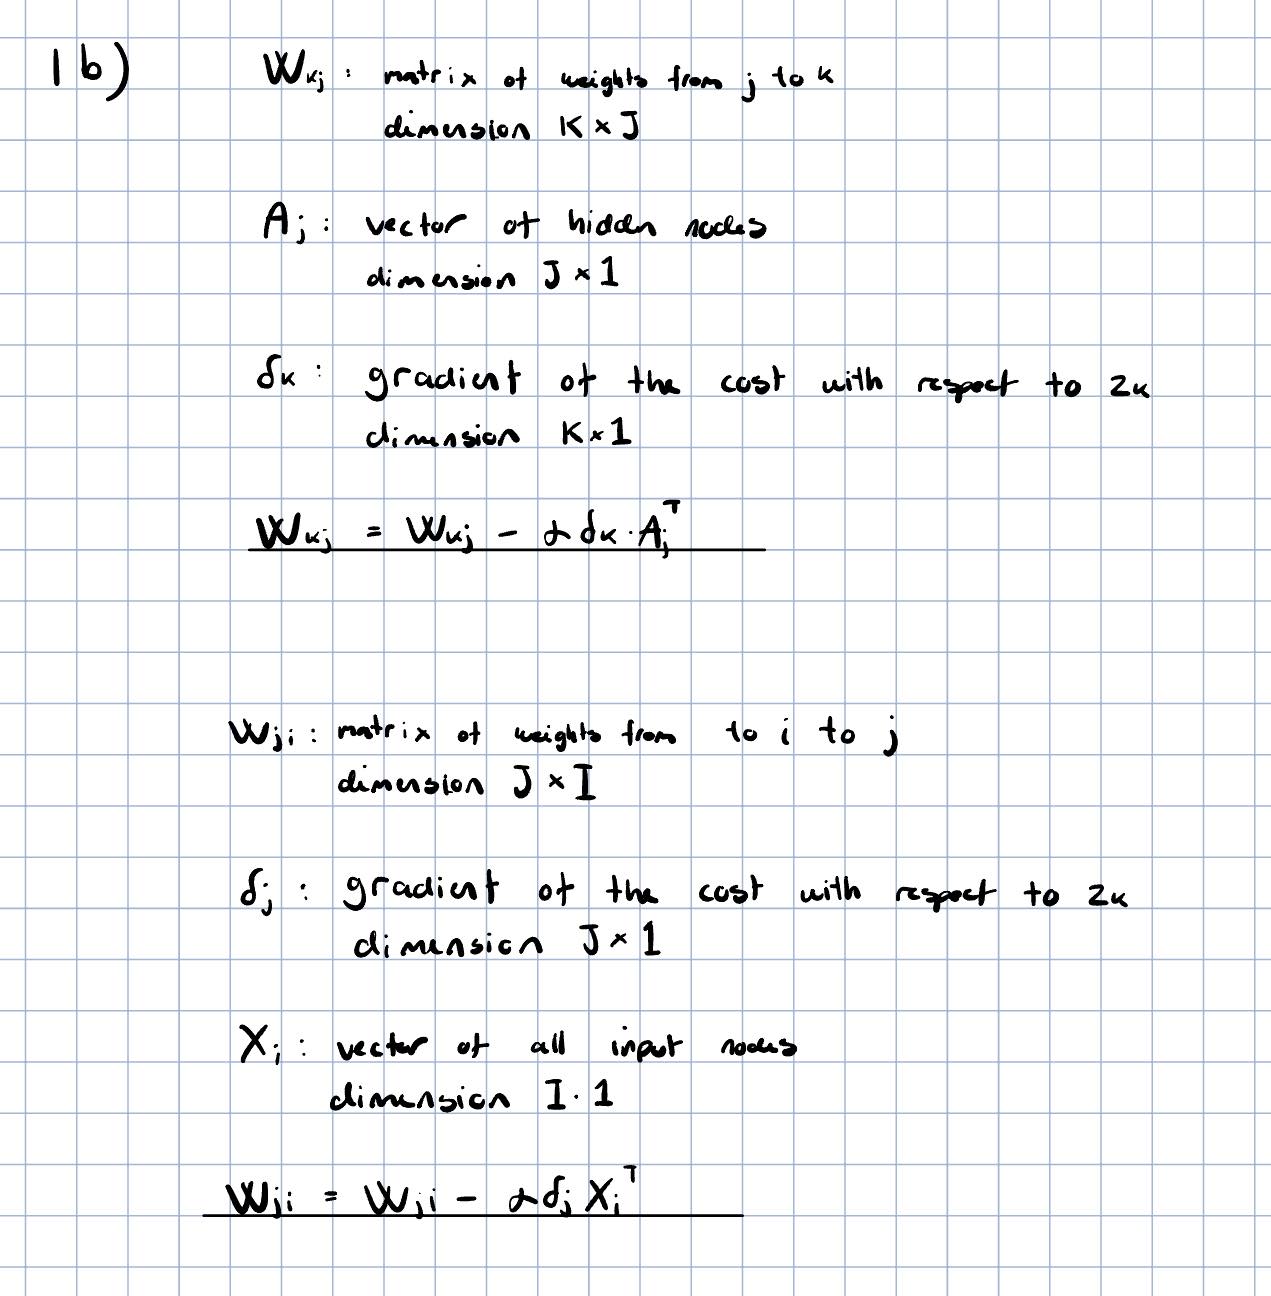 1b)
W_kj : matrix of weights from j to k
dimension K × J
A_j : vector of hidden nodes
dimension J × 1
δ_k : gradient of the cost with respect to z_k
dimension K × 1
W_kj = W_kj - α δ_k · A_j^T
W_ji : matrix of weights from to i to j
dimension J × I
δ_j : gradient of the cost with respect to z_k
dimension J × 1
X_i : vector of all input nodes
dimension I · 1
W_ji = W_ji - α δ_j X_i^T